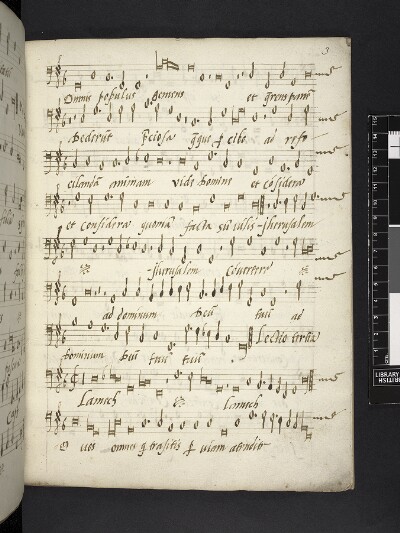 3
Omnis populus gemens et querens panē
Dederūt p̄ciosa q̄q; p̄ cibo ad refo
cilandā animam vide Domine et cōsidera
et considera quoniā facta sū vilis Jherusalem
Jherusalem Convertere
ad dominum Deū tuū ad
Dominum Deū tuū tuū Lectio tertia
Lamech Lamech
O vos omnes q̄ trāsitis p̄ viam atendite
LIBRARY